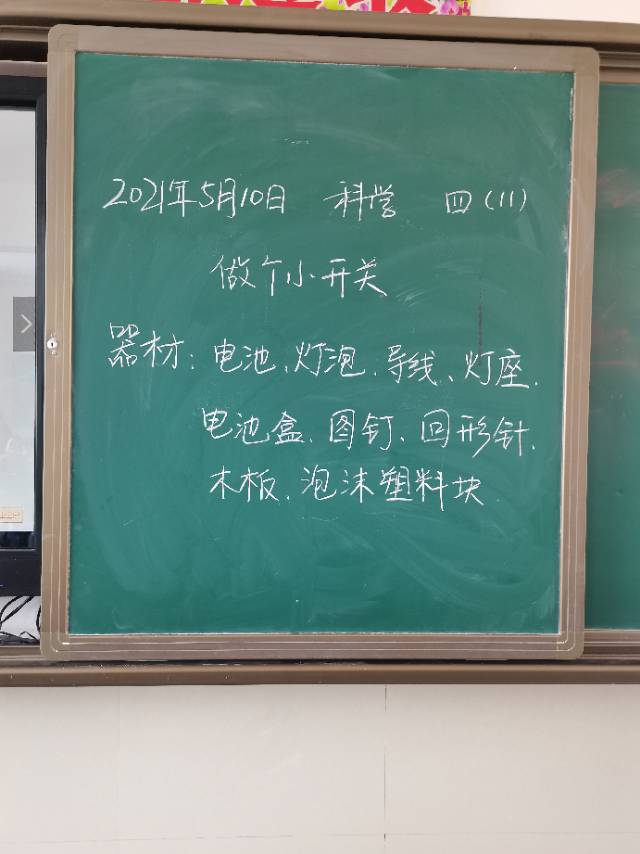 2021年5月10日 科学 四(11)
做个小开关
器材：电池、灯泡、导线、灯座、
电池盒、图钉、回形针、
木板、泡沫塑料块